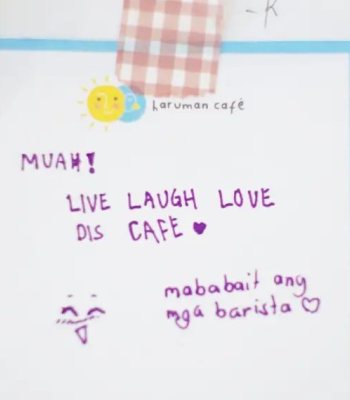 - K
haruman café
MUAH!
LIVE LAUGH LOVE
DIS CAFE ♥
mababait ang
mga barista ♡